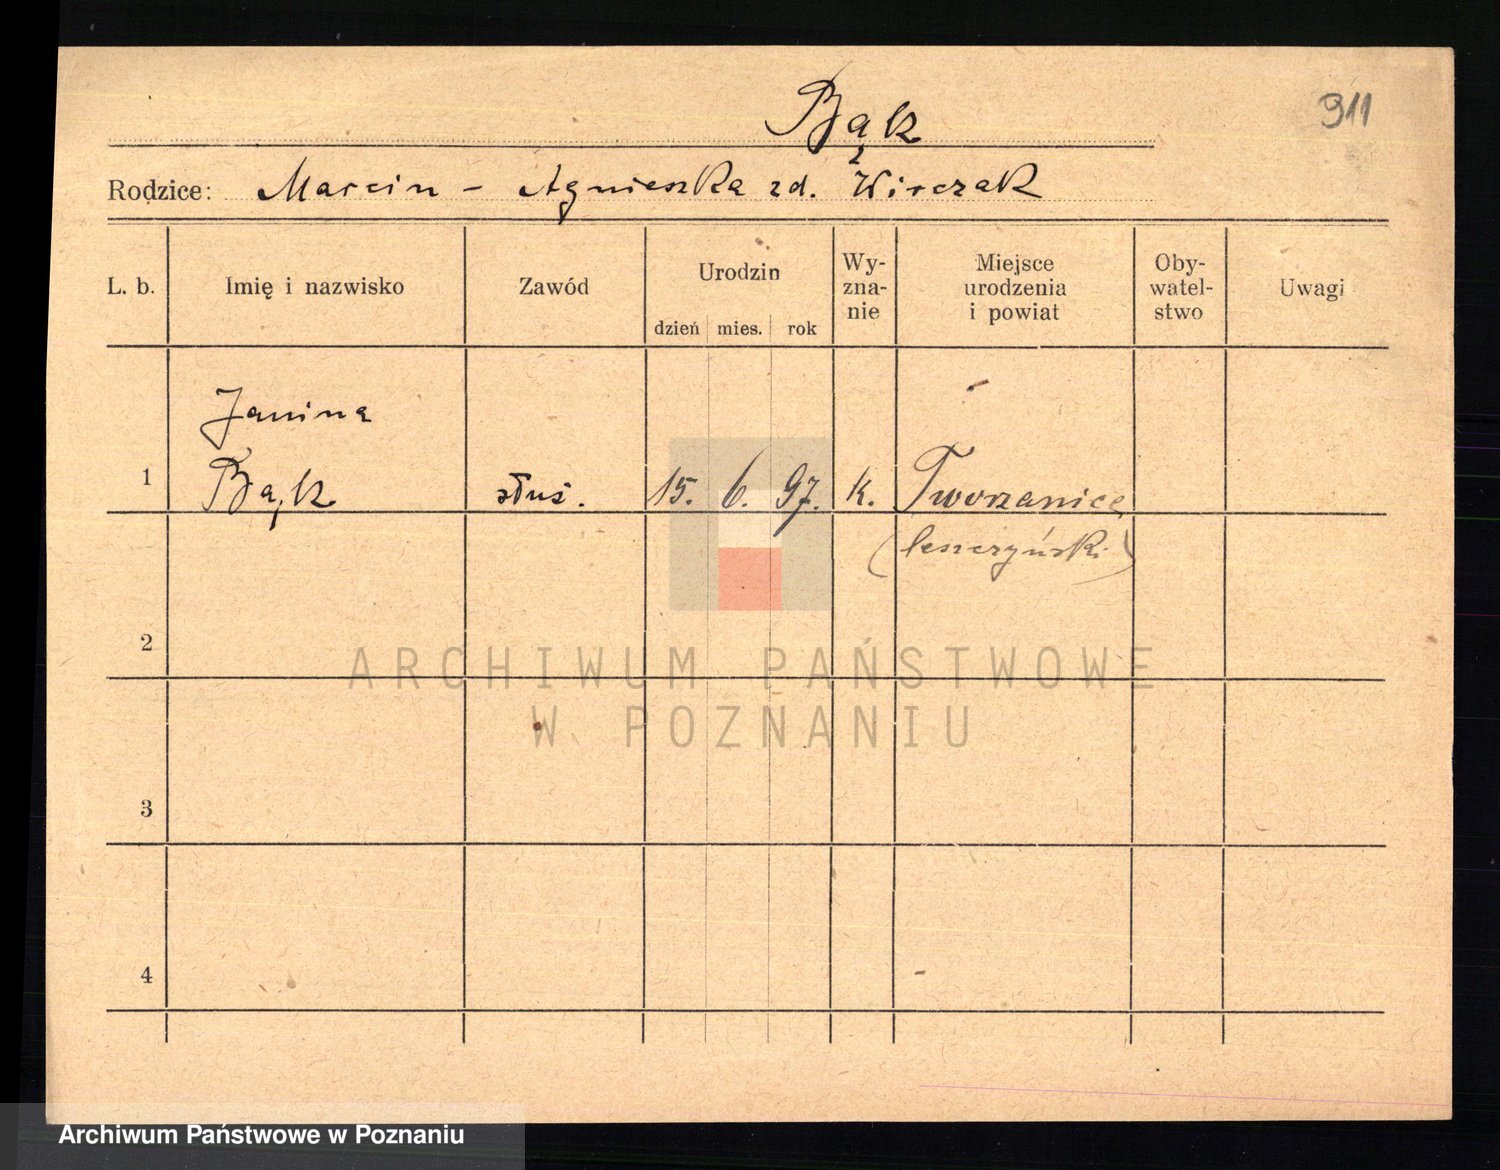 911
Bąk
Rodzice: Marcin – Agnieszka zd. Wirczak
L. b.
Imię i nazwisko
Zawód
Urodzin
dzień mies. rok
Wy-
zna-
nie
Miejsce
urodzenia
i powiat
Oby-
watel-
stwo
Uwagi
Janina
1 Bąk służ. 15. 6. 97. k. Tworzanice
(leszczyński)
2
3
4
ARCHIWUM PAŃSTWOWE
W POZNANIU
Archiwum Państwowe w Poznaniu